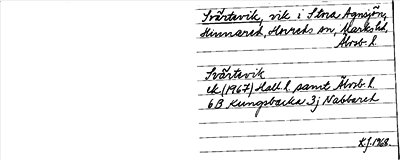 Svärtavik, vik i Stora Agnsjön,
Hinnared, Horreds sn, Marks hd,
Älvsb. l.
Svärtavik
ek (1967) Hall. l. samt Älvsb. l.
6B Kungsbacka 3j Nabbared
KJ. 1968.